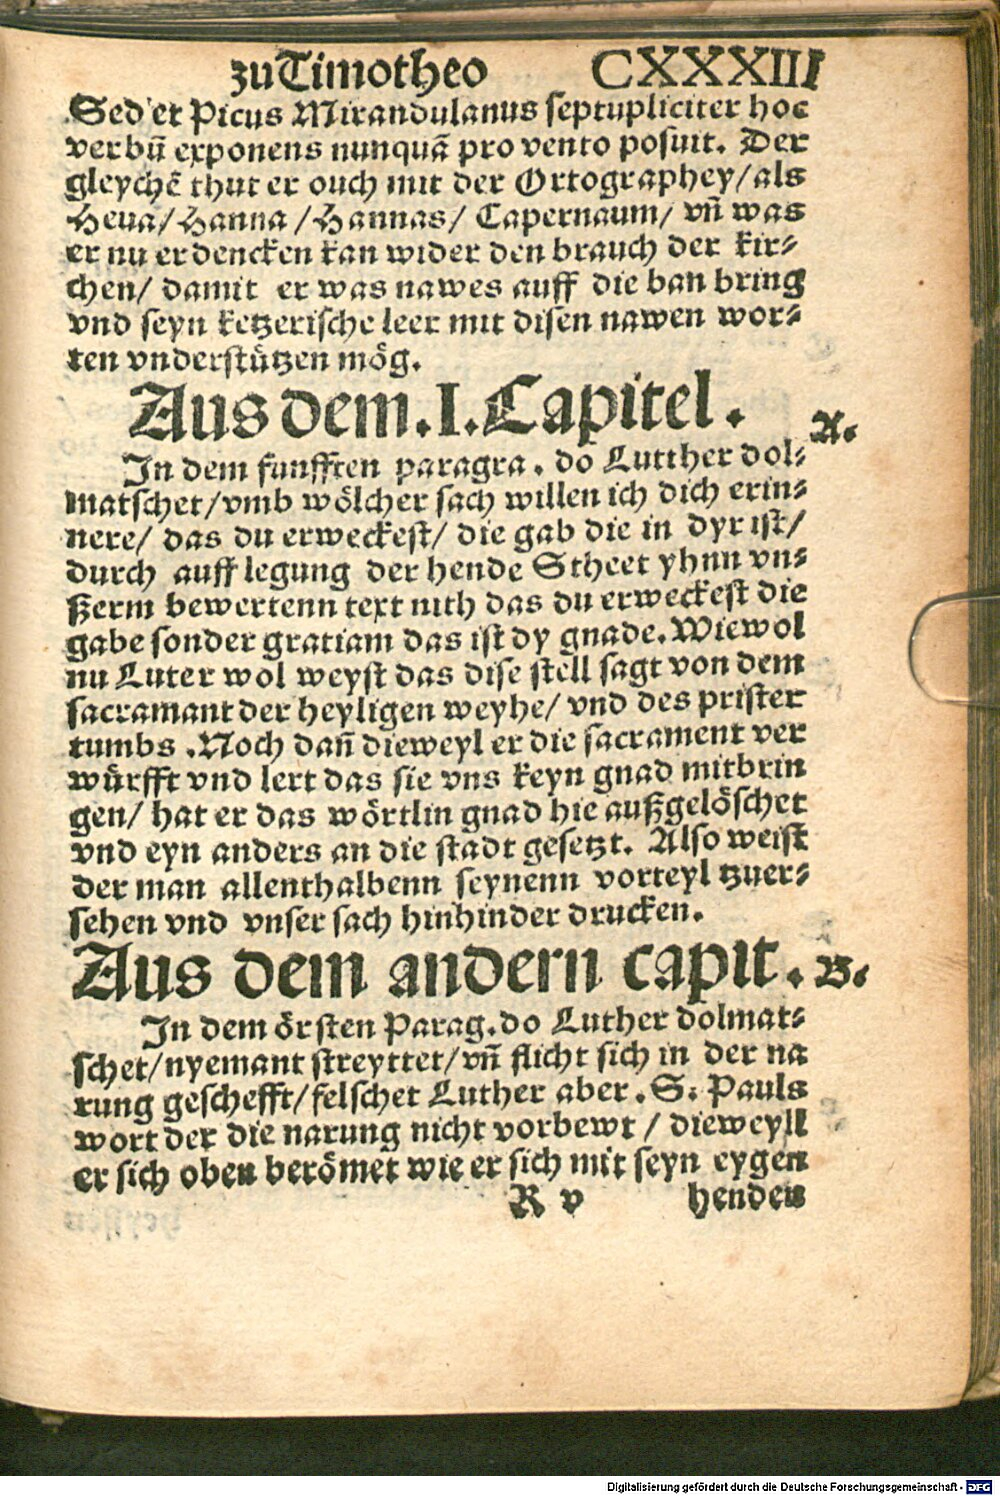 zu Timotheo CXXXIII
Sed et Picus Mirandulanus septupliciter hoc
verbū exponens nunquā pro vento posuit. Der
gleychē thut er ouch mit der Ortographey/ als
Heua/ Hanna / Hannas/ Capernaum/ vn̄ was
er nu erdencken kan wider den brauch der kir⸗
chen/ damit er was nawes auff die ban bring
vnd seyn ketzerische leer mit disen nawen wor⸗
ten vnderstützen mög.
Aus dem .I. Capitel.
A.
In dem funfften paragra. do Lutther dol⸗
matschet/ vmb wölcher sach willen ich dich erin⸗
nere/ das du erweckest/ die gab die in dyr ist/
durch aufflegung der hende Stheet yhnn vn⸗
ßerm bewertenn text nith das du erweckest die
gabe sonder gratiam das ist dy gnade. Wiewol
nu Luter wol weyst das dise stell sagt von dem
sacramant der heyligen weyhe/ vnd des prister
tumbs . Noch dañ dieweyl er die sacrament ver
würfft vnd lert das sie vns keyn gnad mitbrin
gen/ hat er das wörtlin gnad hie außgelöschet
vnd eyn anders an die stadt gesetzt. Also weist
der man allenthalbenn seynenn vorteyl tzuer⸗
sehen vnd vnser sach hinhinder drucken.
Aus dem andern capit.
B.
In dem örsten Parag. do Luther dolmat⸗
schet/ nyemant streyttet/ vn̄ flicht sich in der na
rung geschefft/ felschet Luther aber. S. Pauls
wort der die narung nicht vorbewt / dieweyll
er sich oben berömet wie er sich mit seyn eygen
R v henden
Digitalisierung gefördert durch die Deutsche Forschungsgemeinschaft - DFG